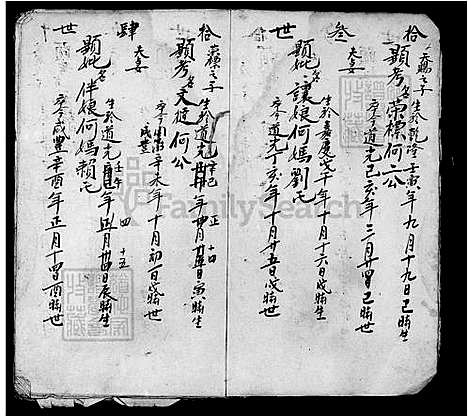 拾叁世
喬之子
顯考名榮標何二公
生於乾隆壬寅年九月十九日巳時生
卒於道光己亥年三月廿四日巳時世
夫妻
顯妣名讓娘何媽劉氏
生於嘉慶戊午年十月十六日戌時生
卒於道光丁亥年十月廿五日戌時世
拾肆世
榮標之子
顯考名文何公
生於道光辛巳年正月十四日寅時生
卒於同治辛未年十月初一日戌時世
夫妻
顯妣名伴娘何媽賴氏
生於道光壬午年四月十五日辰時生
卒於咸豐辛酉年正月十四日酉時世
FamilySearch